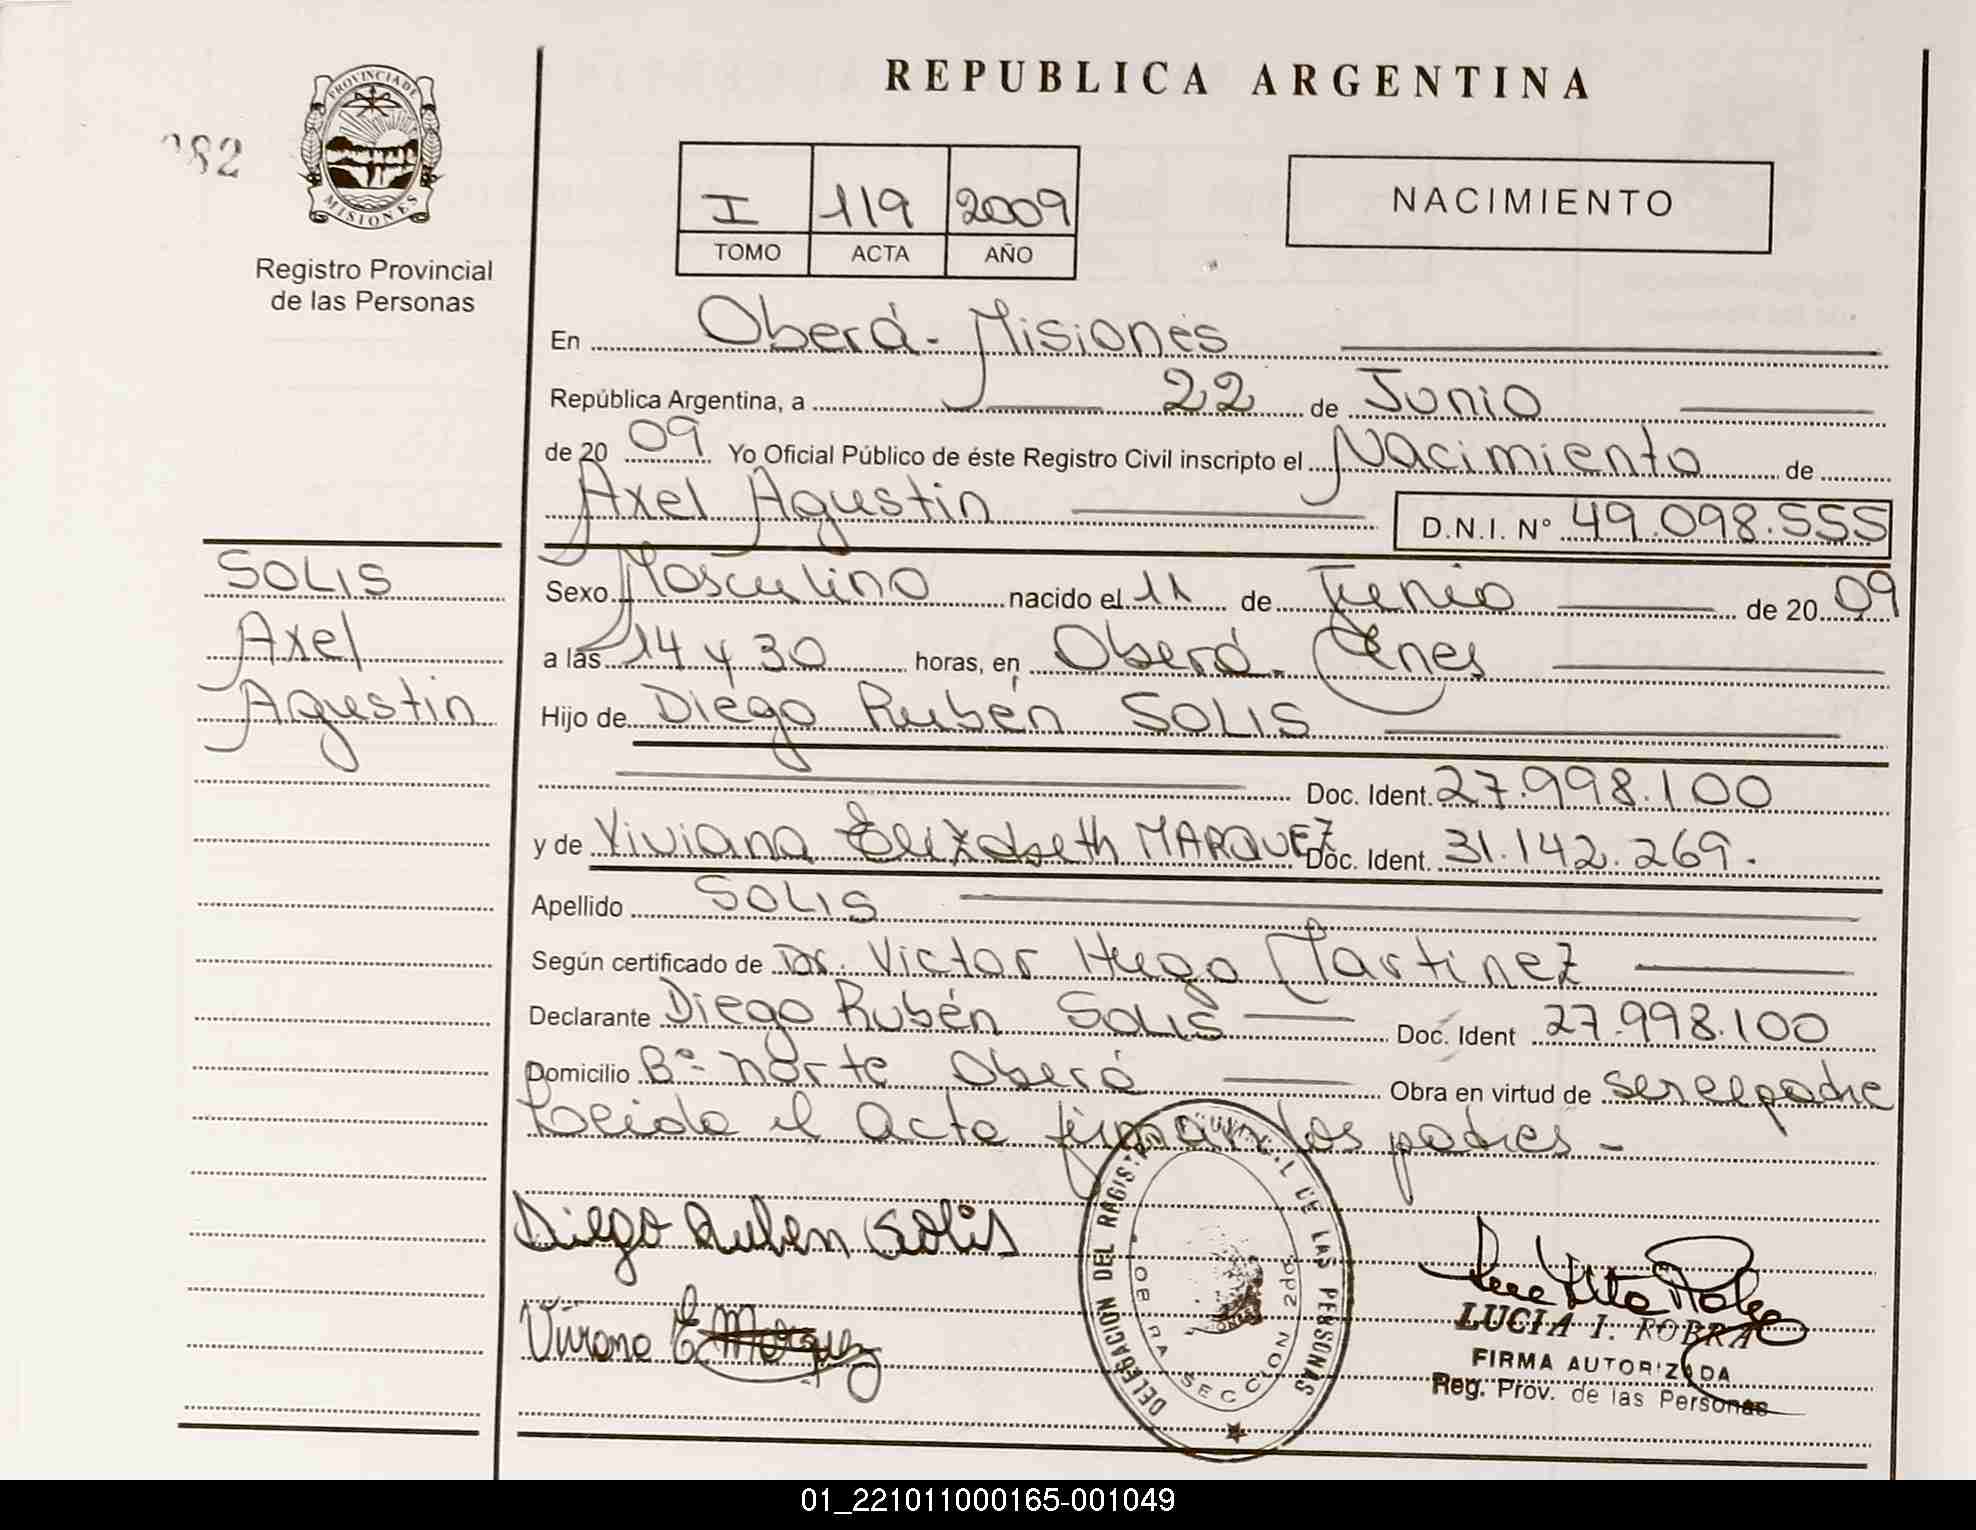 REPUBLICA ARGENTINA
PROVINCIA DE
MISIONES
82
Registro Provincial
de las Personas
I 119 2009
TOMO ACTA AÑO
NACIMIENTO
En Oberá - Misiones
República Argentina, a 22 de Junio
de 20 09 Yo Oficial Público de éste Registro Civil inscripto el Nacimiento de
Axel Agustin D.N.I. N° 49.098.555
SOLIS
Axel
Agustin
Sexo Masculino nacido el 11 de Junio de 20 09
a las 14 y 30 horas, en Oberá - Mnes
Hijo de Diego Rubén SOLIS
Doc. Ident. 27.998.100
y de Viviana Elizabeth MARQUEZ Doc. Ident. 31.142.269.
Apellido SOLIS
Según certificado de Dr. Victor Hugo Martinez
Declarante Diego Rubén SOLIS Doc. Ident 27.998.100
Domicilio B° norte Oberá Obra en virtud de ser el padre
Leida el acta firman los padres -
Diego Ruben Solis
Viviana E Marquez
DELEGACION DEL REGISTRO PROVINCIAL DE LAS PERSONAS
OBERA SECCION 2da
LUCIA I. ROBRA
FIRMA AUTORIZADA
Reg. Prov. de las Personas
01_221011000165-001049